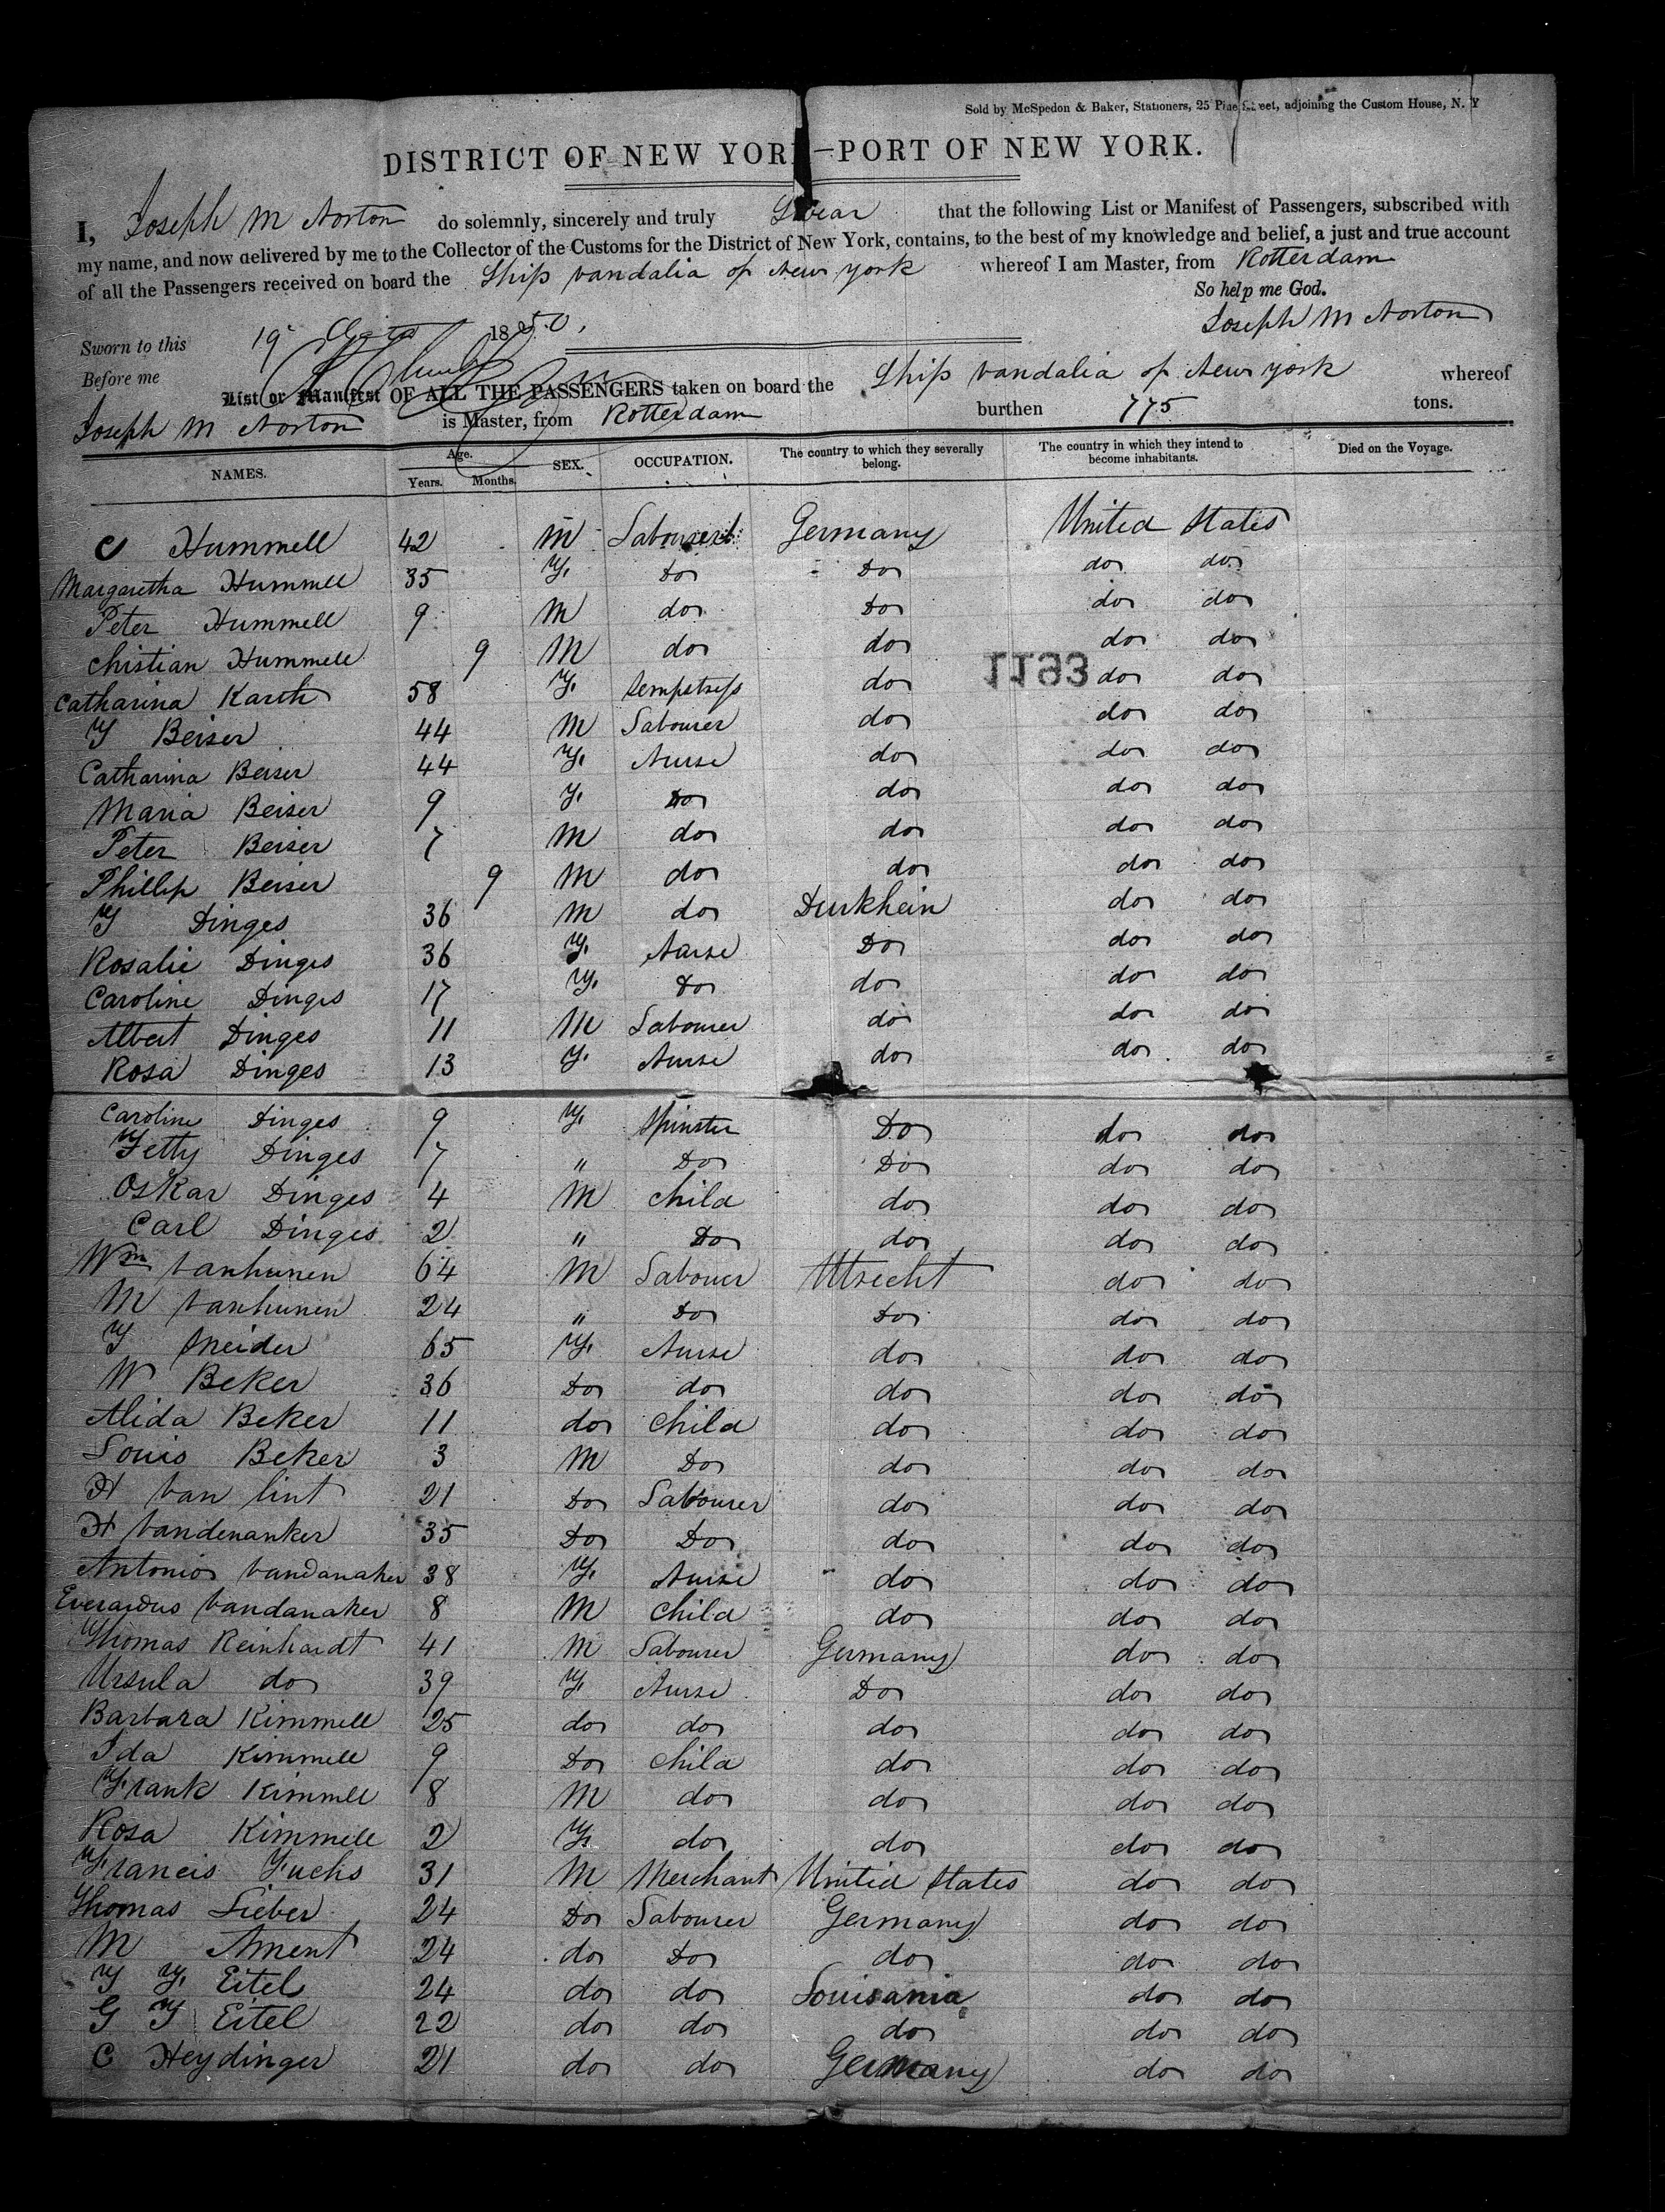 Sold by McSpedon & Baker, Stationers, 25 Pine Street, adjoining the Custom House, N. Y
DISTRICT OF NEW YORK—PORT OF NEW YORK.
I, Joseph M Norton do solemnly, sincerely and truly Swear that the following List or Manifest of Passengers, subscribed with
my name, and now delivered by me to the Collector of the Customs for the District of New York, contains, to the best of my knowledge and belief, a just and true account
of all the Passengers received on board the Ship Vandalia of New york whereof I am Master, from Rotterdam
So help me God.
Sworn to this 19 1850. Joseph M Norton
Before me
List or Manifest OF ALL THE PASSENGERS taken on board the Ship Vandalia of New york whereof
Joseph M Norton is Master, from Rotterdam burthen 775 tons.
NAMES. Age. Years. Months. SEX. OCCUPATION. The country to which they severally belong. The country in which they intend to become inhabitants. Died on the Voyage.
C Hummell 42 M Labourer Germany United States
Margaretha Hummell 35 F. Do Do do do
Peter Hummell 9 M do Do do do
Christian Hummell 9 M do do do do
1193
Catharina Karth 58 F. Sempstress do do do
J Beiser 44 M Labourer do do do
Catharina Beiser 44 F. Nurse do do do
Maria Beiser 9 F. Do do do do
Peter Beiser 7 M do do do do
Phillip Beiser 9 M do do do do
J Dinges 36 M do Durkhein do do
Rosalie Dinges 36 F. Nurse Do do do
Caroline Dinges 17 F. Do do do do
Albert Dinges 11 M Labourer do do do
Rosa Dinges 13 F. Nurse do do do
Caroline Dinges 9 F. Spinster Do do do
Jetty Dinges 7 " Do Do do do
Oskar Dinges 4 M Child do do do
Carl Dinges 2 " Do do do do
Wm Vanhunen 64 M Labouer Utrecht do do
M Vanhunen 24 " Do Do do do
J Sneider 65 F. Nurse do do do
W Beker 36 Do do do do do
Alida Beker 11 do Child do do do
Louis Beker 3 M Do do do do
H Van lint 21 Do Labourer do do do
H Vandenanker 35 Do Do do do do
Antonio Vandanaker 38 F. Nurse do do do
Everardus Vandanaker 8 M Child do do do
Thomas Reinhardt 41 M Labourer Germany do do
Ursula do 39 F Nurse Do do do
Barbara Kimmell 25 do do do do do
Ida Kimmell 9 Do Child do do do
Frank Kimmell 8 M do do do do
Rosa Kimmell 2 F. do do do do
Francis Fuchs 31 M Merchant United States do do
Thomas Lieber 24 Do Labourer Germany do do
M Ament 24 do Do do do do
J F. Eitel 24 do do Louisania do do
G J Eitel 22 do do do do do
C Heydinger 21 do do Germany do do